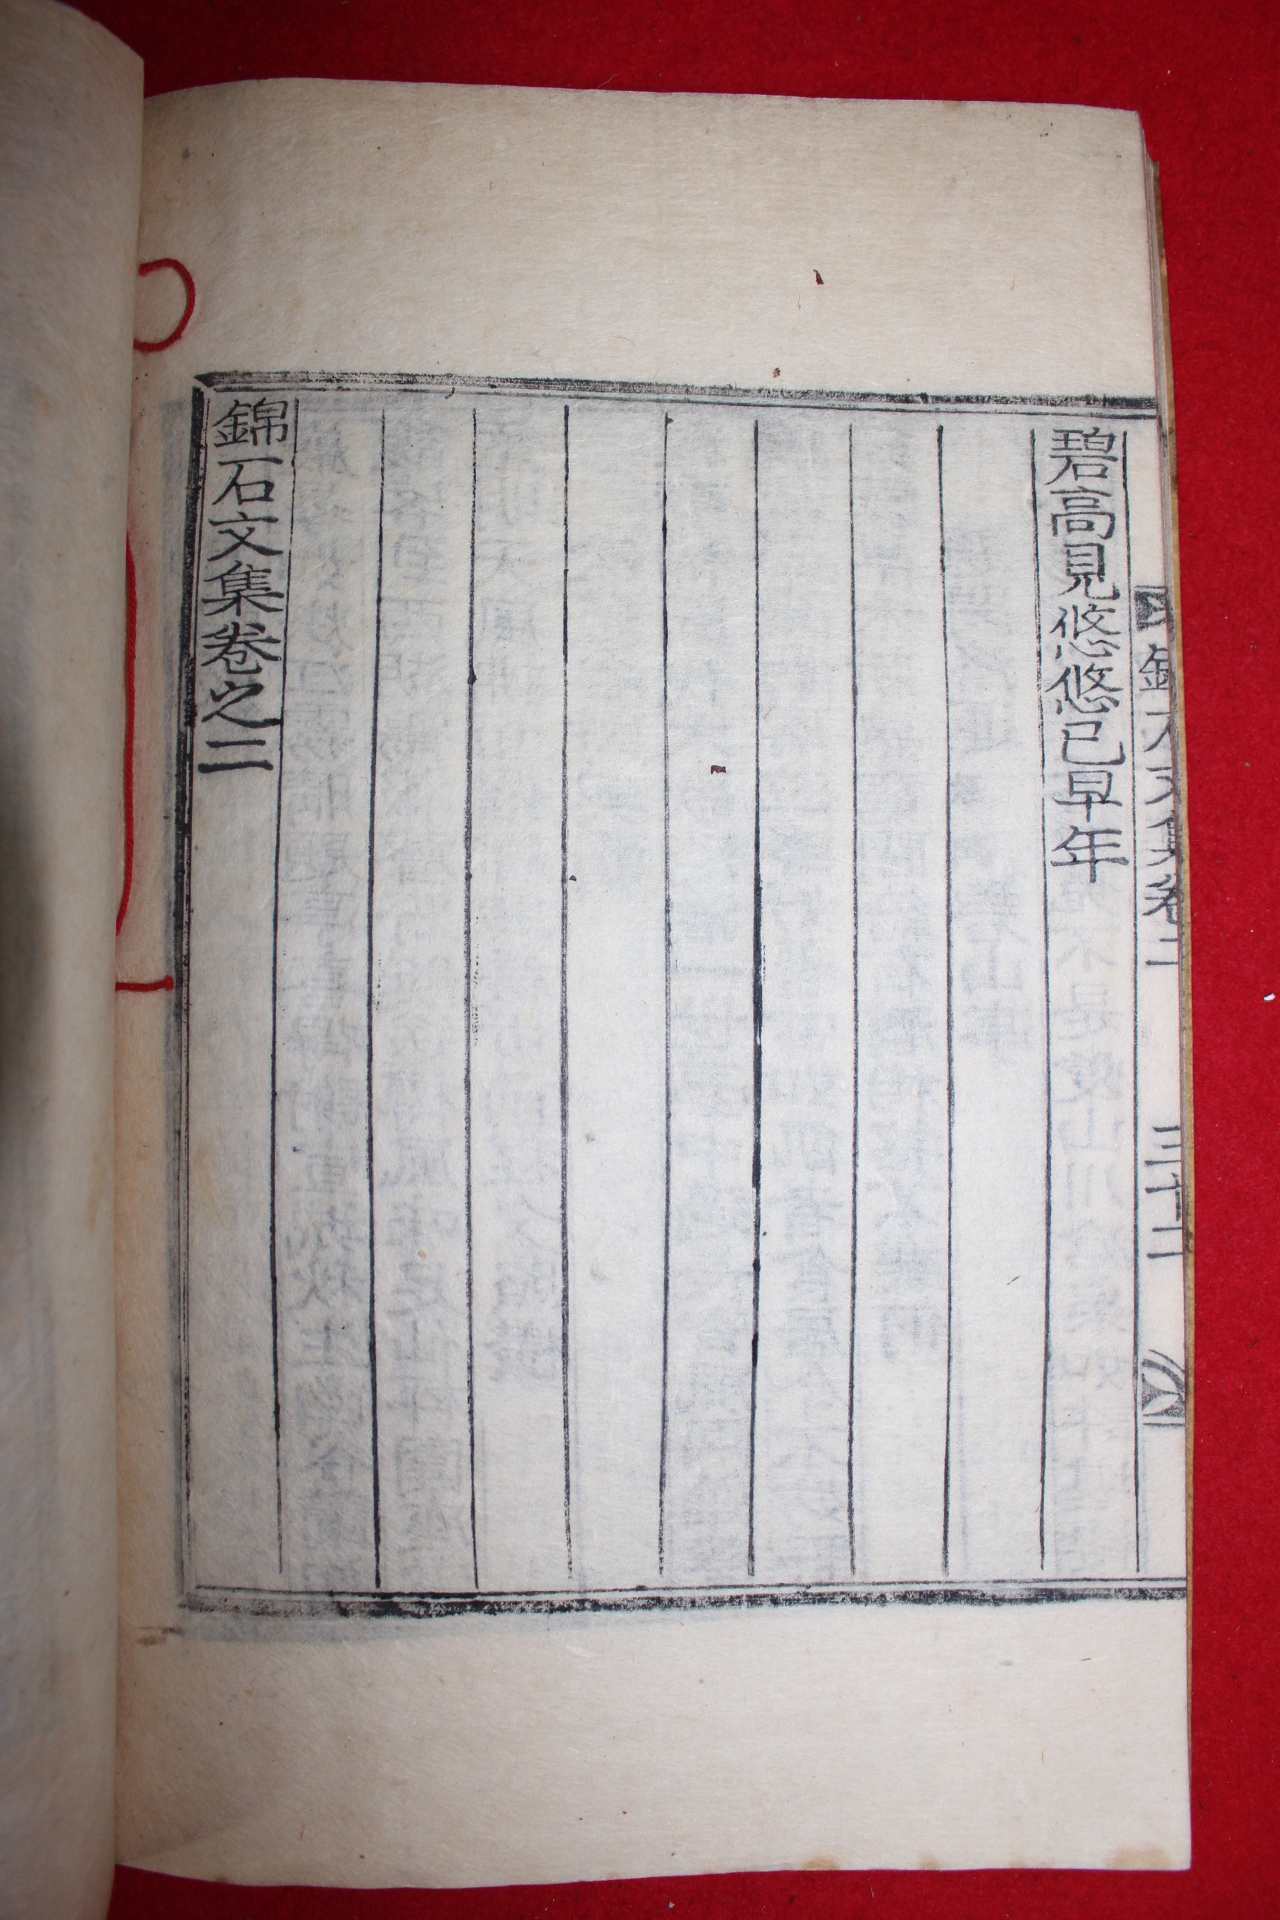 碧高見悠悠已早年
錦石文集卷之二
錦石文集卷二
三十二